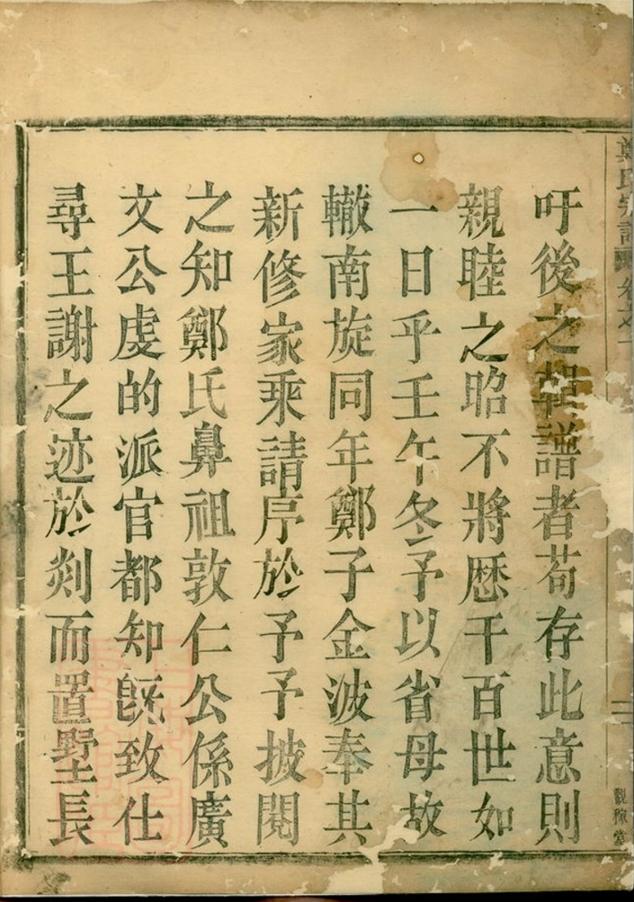 鄭氏宗譜 卷之一
吁後之輯譜者苟存此意則
親睦之昭不將厯千百世如
一日乎壬午冬予以省母故
轍南旋同年鄭子金波奉其
新修家乘請序於予予披閱
之知鄭氏鼻祖敦仁公係廣
文公虔的派官都知旣致仕
尋王謝之迹於剡而置墅長